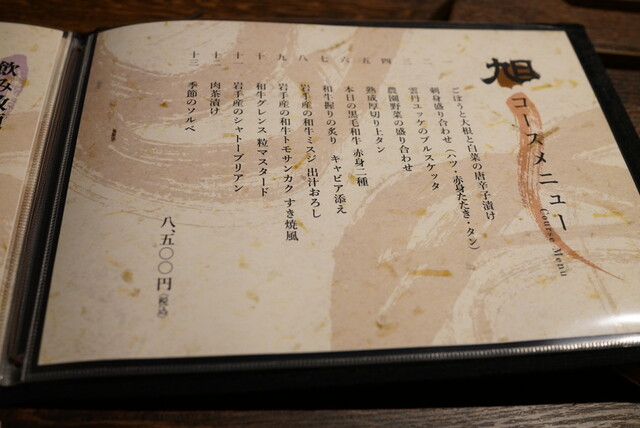 旭
コースメニュー
Course Menu
ごぼうと大根と白菜の唐辛子漬け
二 刺身盛り合わせ（ハツ・赤身たたき・タン）
三 雲丹ユッケのブルスケッタ
四 農園野菜の盛り合わせ
五 熟成厚切り上タン
六 本日の黒毛和牛 赤身二種
七 和牛握りの炙り キャビア添え
八 岩手産の和牛ミスジ 出汁おろし
九 岩手産の和牛トモサンカク すき焼風
十 和牛グレンス 粒マスタード
十一 岩手産のシャトーブリアン
十二 肉茶漬け
十三 季節のソルベ
八、五〇〇円（税込）
飲み放題